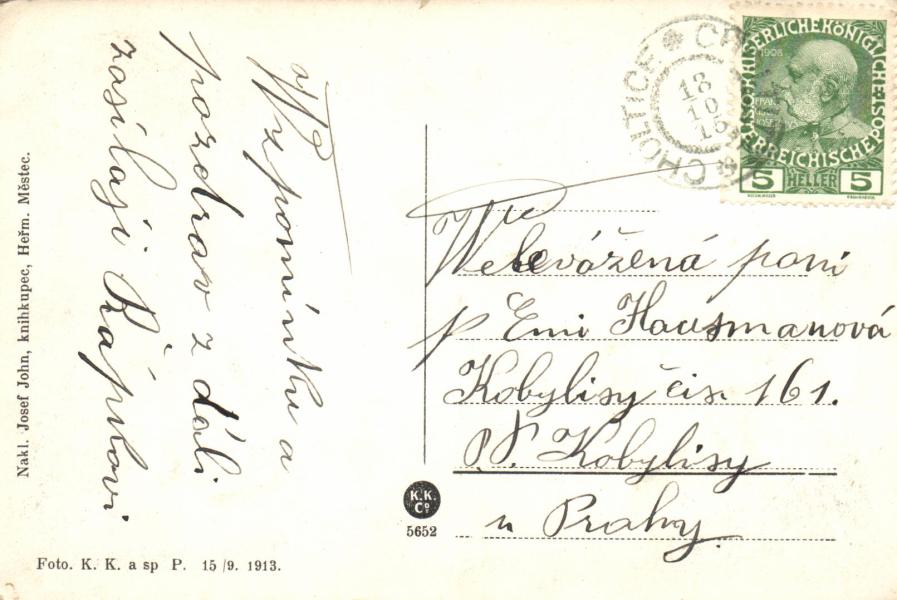 Vzpomínku a
pozdrav z dáli
zasílají Řáplovi
Velevážená paní
p Emi Hausmanová
Kobylisy čís. 161.
P. Kobylisy
u Prahy.
CHOLTICE
18
10
15
KAISERLICHE KÖNIGLICHE
ÖSTERREICHISCHE POST
1908
5 HELLER 5
Nakl. Josef John, knihkupec, Heřm. Městec.
K. K.
Cº
5652
Foto. K. K. a sp P. 15/9. 1913.